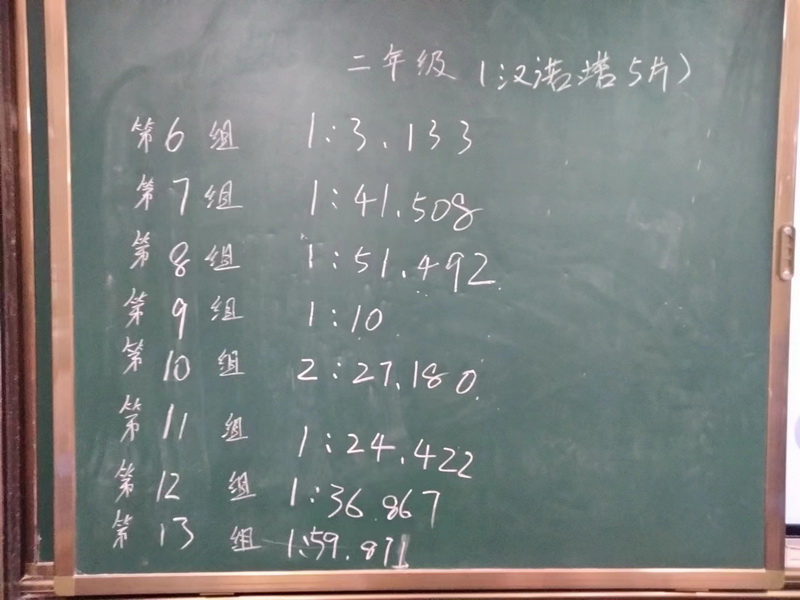 二年级（汉诺塔5片）
第6组 1:3.133
第7组 1:41.508
第8组 1:51.492
第9组 1:10
第10组 2:27.180
第11组 1:24.422
第12组 1:36.867
第13组 1:59.871